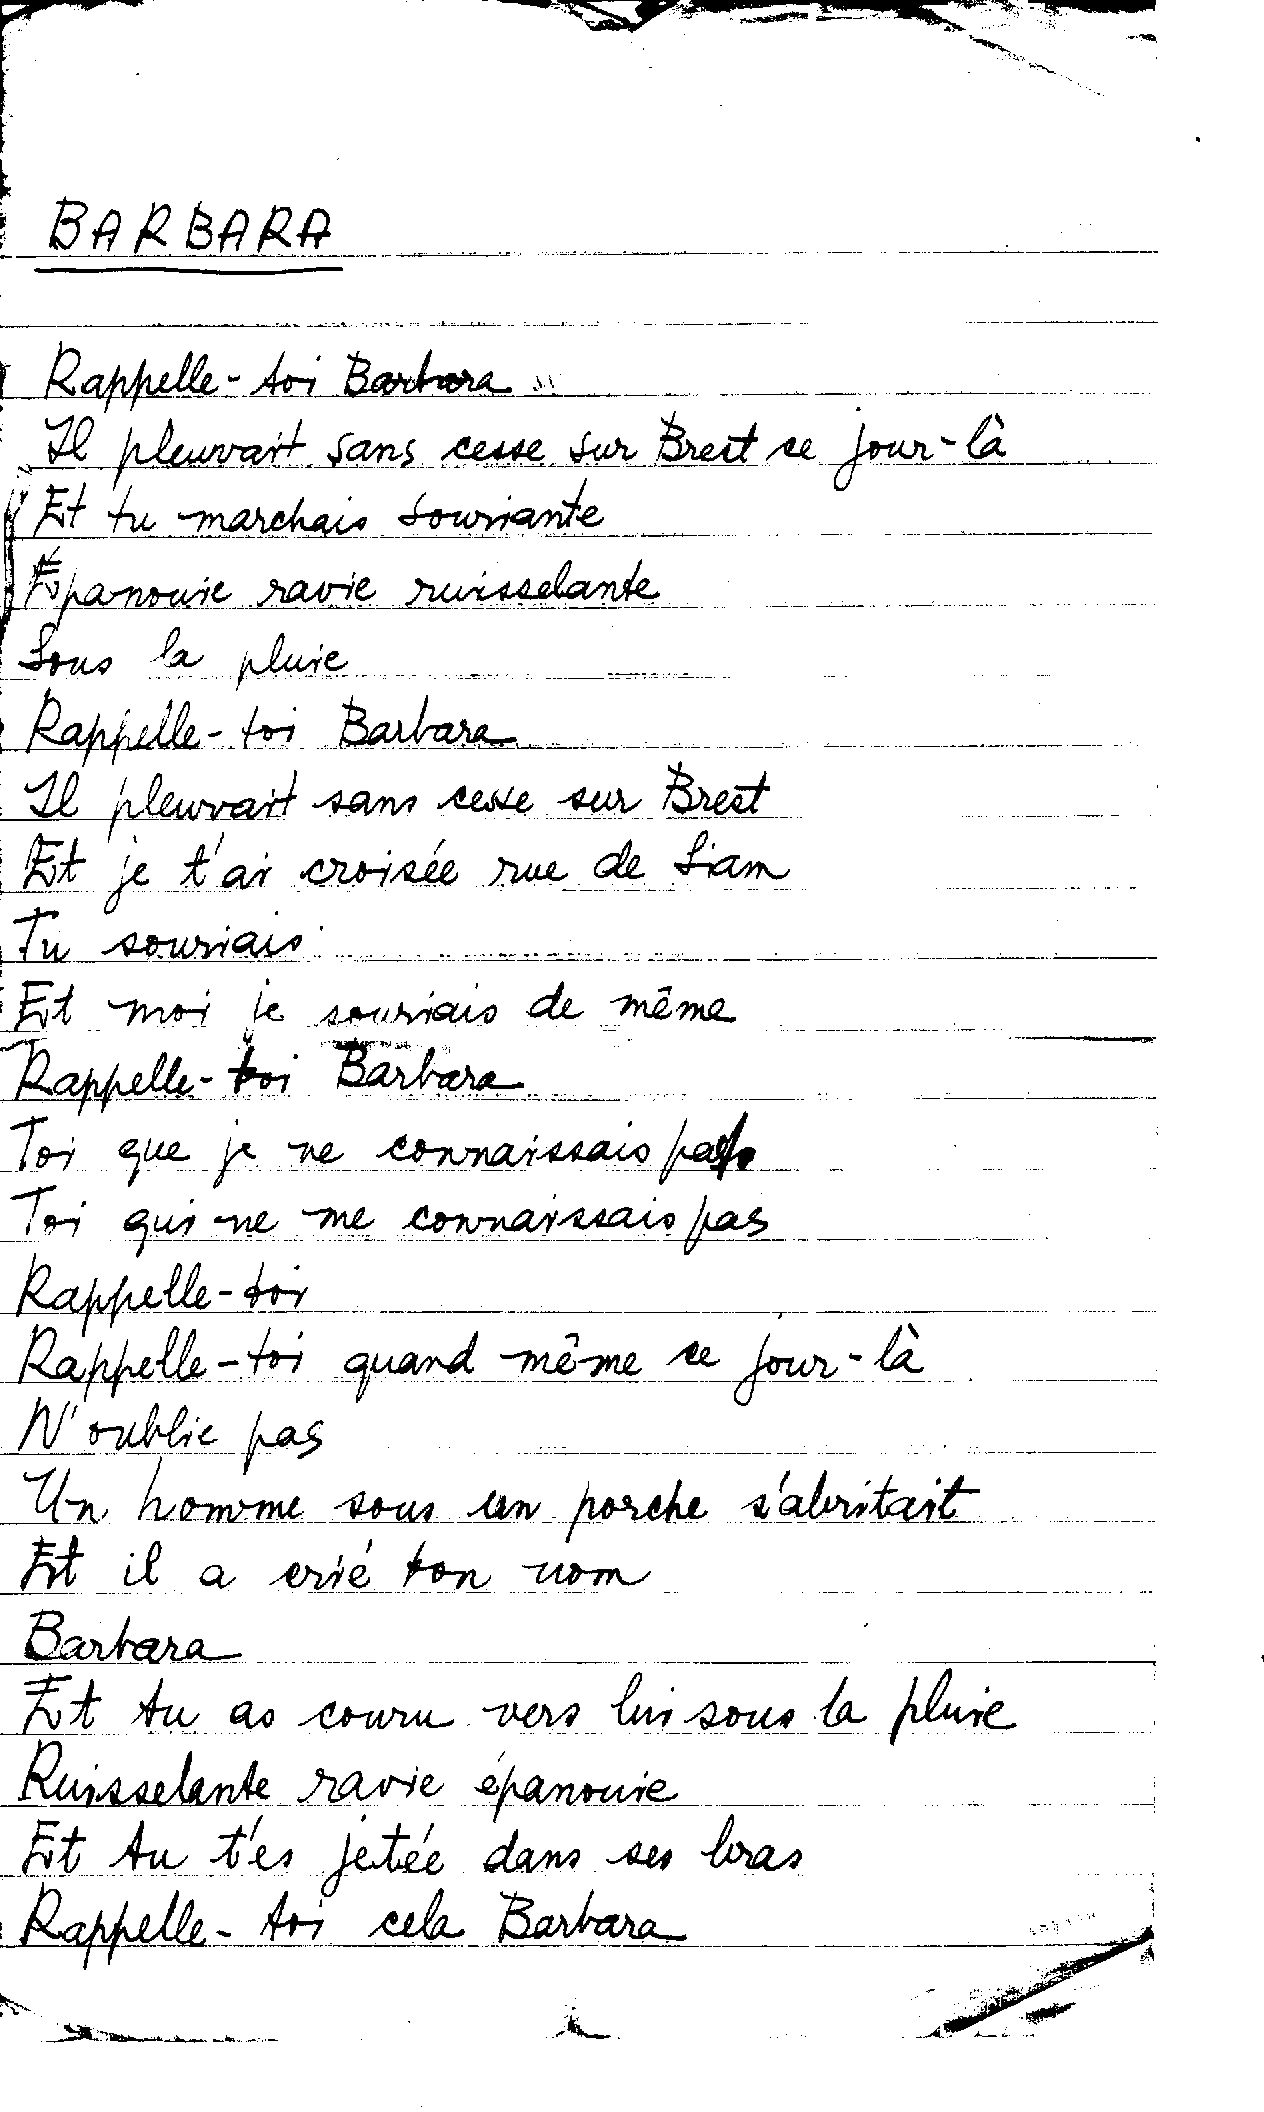 BARBARA
Rappelle-toi Barbara
Il pleuvait sans cesse sur Brest ce jour-là
Et tu marchais souriante
Épanouie ravie ruisselante
Sous la pluie
Rappelle-toi Barbara
Il pleuvait sans cesse sur Brest
Et je t'ai croisée rue de Siam
Tu souriais
Et moi je souriais de même
Rappelle-toi Barbara
Toi que je ne connaissais pas
Toi qui ne me connaissais pas
Rappelle-toi
Rappelle-toi quand même ce jour-là
N'oublie pas
Un homme sous un porche s'abritait
Et il a crié ton nom
Barbara
Et tu as couru vers lui sous la pluie
Ruisselante ravie épanouie
Et tu t'es jetée dans ses bras
Rappelle-toi cela Barbara